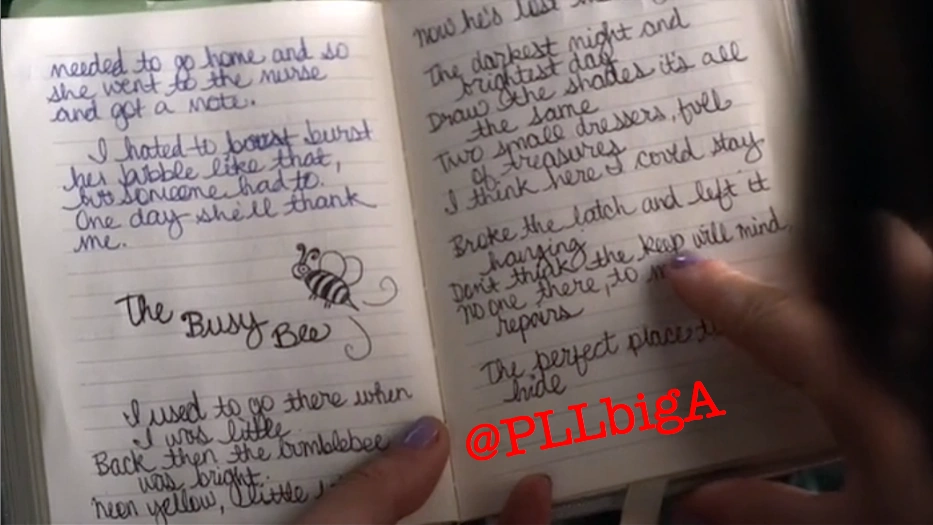 needed to go home and so
she went to the nurse
and got a note.
I hated to burst
her bubble like that,
but someone had to.
One day she'll thank
me.
The Busy Bee
I used to go there when
I was little
Back then the bumblebee
was bright.
Neon yellow, little
now he's lost
The darkest night and
brightest day
Draw the shades it's all
the same
Two small dressers, full
of treasures
I think here I could stay
Broke the latch and left it
hanging
Don't think the keep will mind,
No one there, to
repairs
The perfect place
hide
@PLLbigA